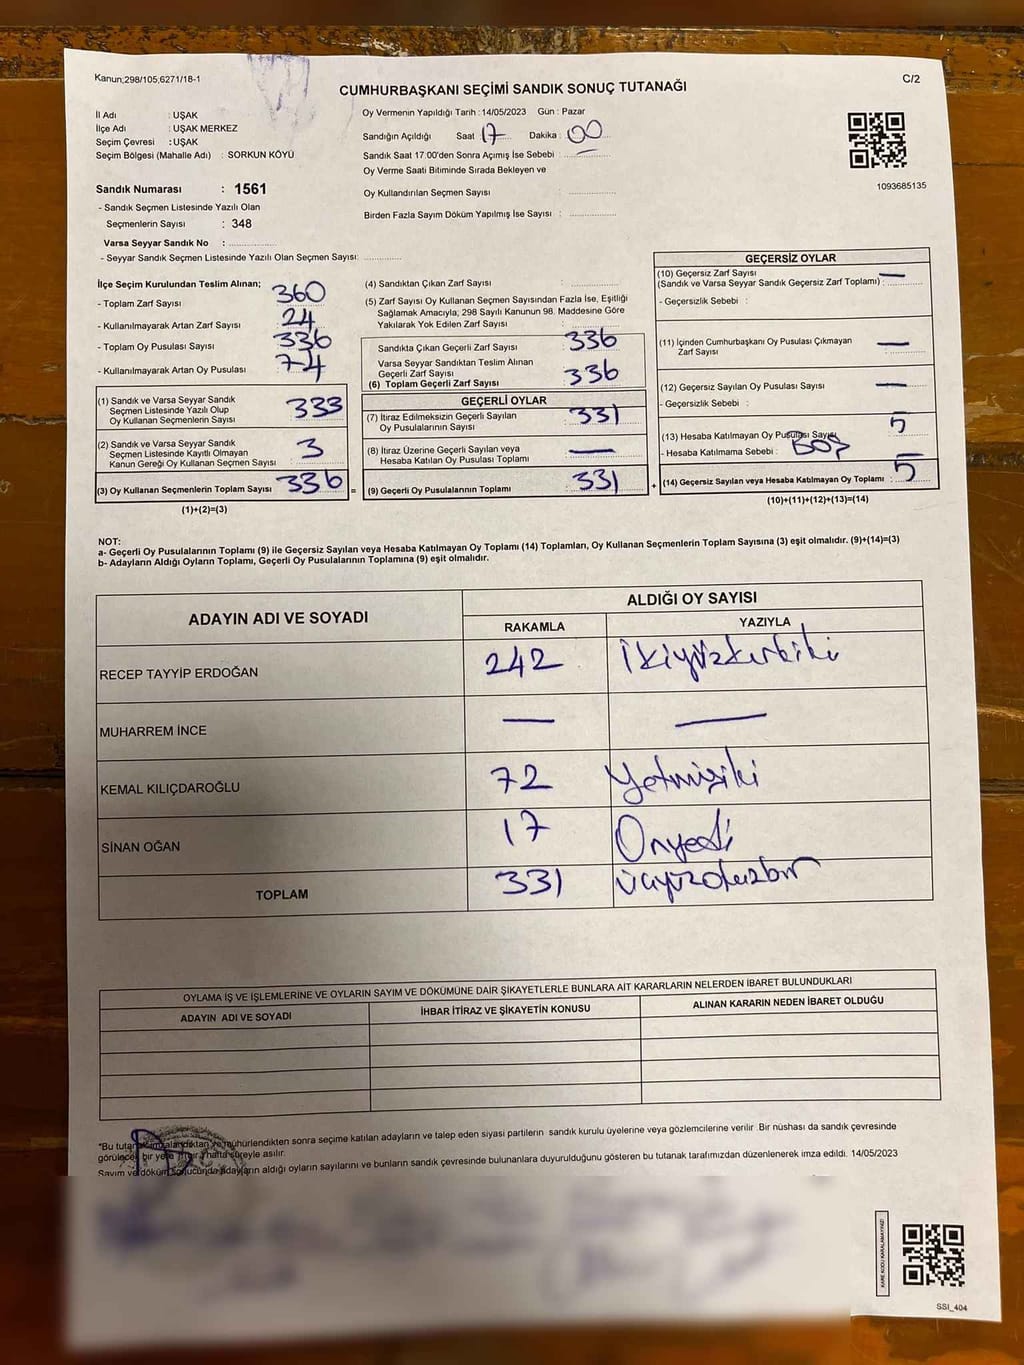 Kanun;298/105,6271/18-1
C/2
CUMHURBAŞKANI SEÇİMİ SANDIK SONUÇ TUTANAĞI
İl Adı : UŞAK
İlçe Adı : UŞAK MERKEZ
Seçim Çevresi : UŞAK
Seçim Bölgesi (Mahalle Adı) : SORKUN KÖYÜ
Sandık Numarası : 1561
- Sandık Seçmen Listesinde Yazılı Olan
Seçmenlerin Sayısı : 348
Varsa Seyyar Sandık No :
- Seyyar Sandık Seçmen Listesinde Yazılı Olan Seçmen Sayısı:
Oy Vermenin Yapıldığı Tarih : 14/05/2023 Gün : Pazar
Sandığın Açıldığı Saat 17 Dakika : 00
Sandık Saat 17:00'den Sonra Açımış İse Sebebi :
Oy Verme Saati Bitiminde Sırada Bekleyen ve
Oy Kullandırılan Seçmen Sayısı :
Birden Fazla Sayım Döküm Yapılmış İse Sayısı :
1093685135
İlçe Seçim Kurulundan Teslim Alınan;
- Toplam Zarf Sayısı : 360
- Kullanılmayarak Artan Zarf Sayısı : 24
- Toplam Oy Pusulası Sayısı : 336
- Kullanılmayarak Artan Oy Pusulası : 74
(1) Sandık ve Varsa Seyyar Sandık
Seçmen Listesinde Yazılı Olup
Oy Kullanan Seçmenlerin Sayısı : 333
(2) Sandık ve Varsa Seyyar Sandık
Seçmen Listesinde Kayıtlı Olmayan
Kanun Gereği Oy Kullanan Seçmen Sayısı : 3
(3) Oy Kullanan Seçmenlerin Toplam Sayısı : 336 =
(1)+(2)=(3)
(4) Sandıktan Çıkan Zarf Sayısı :
(5) Zarf Sayısı Oy Kullanan Seçmen Sayısından Fazla İse, Eşitliği
Sağlamak Amacıyla; 298 Sayılı Kanunun 98. Maddesine Göre
Yakılarak Yok Edilen Zarf Sayısı :
Sandıkta Çıkan Geçerli Zarf Sayısı : 336
Varsa Seyyar Sandıktan Teslim Alınan
Geçerli Zarf Sayısı
(6) Toplam Geçerli Zarf Sayısı : 336
GEÇERLİ OYLAR
(7) İtiraz Edilmeksizin Geçerli Sayılan
Oy Pusulalarının Sayısı : 331
(8) İtiraz Üzerine Geçerli Sayılan veya
Hesaba Katılan Oy Pusulası Toplamı : —
(9) Geçerli Oy Pusulalarının Toplamı : 331 +
GEÇERSİZ OYLAR
(10) Geçersiz Zarf Sayısı
(Sandık ve Varsa Seyyar Sandık Geçersiz Zarf Toplamı) : —
- Geçersizlik Sebebi :
(11) İçinden Cumhurbaşkanı Oy Pusulası Çıkmayan
Zarf Sayısı : —
(12) Geçersiz Sayılan Oy Pusulası Sayısı : —
- Geçersizlik Sebebi :
(13) Hesaba Katılmayan Oy Pusulası Sayısı : 5
- Hesaba Katılmama Sebebi : BOŞ
(14) Geçersiz Sayılan veya Hesaba Katılmayan Oy Toplamı : 5
(10)+(11)+(12)+(13)=(14)
NOT:
a- Geçerli Oy Pusulalarının Toplamı (9) ile Geçersiz Sayılan veya Hesaba Katılmayan Oy Toplamı (14) Toplamları, Oy Kullanan Seçmenlerin Toplam Sayısına (3) eşit olmalıdır. (9)+(14)=(3)
b- Adayların Aldığı Oyların Toplamı, Geçerli Oy Pusulalarının Toplamına (9) eşit olmalıdır.
ADAYIN ADI VE SOYADI
ALDIĞI OY SAYISI
RAKAMLA YAZIYLA
RECEP TAYYİP ERDOĞAN 242 İkiyüzkırkiki
MUHARREM İNCE — —
KEMAL KILIÇDAROĞLU 72 Yetmişiki
SİNAN OĞAN 17 Onyedi
TOPLAM 331 üçyüzotuzbir
OYLAMA İŞ VE İŞLEMLERİNE VE OYLARIN SAYIM VE DÖKÜMÜNE DAİR ŞİKAYETLERLE BUNLARA AİT KARARLARIN NELERDEN İBARET BULUNDUKLARI
ADAYIN ADI VE SOYADI İHBAR İTİRAZ VE ŞİKAYETİN KONUSU ALINAN KARARIN NEDEN İBARET OLDUĞU
*Bu tutanak imzalandıktan ve mühürlendikten sonra seçime katılan adayların ve talep eden siyasi partilerin sandık kurulu üyelerine veya gözlemcilerine verilir. Bir nüshası da sandık çevresinde
görülecek bir yere bir hafta süreyle asılır.
Sayım ve döküm sonucunda adayların aldığı oyların sayılarını ve bunların sandık çevresinde bulunanlara duyurulduğunu gösteren bu tutanak tarafımızdan düzenlenerek imza edildi. 14/05/2023
KARE KODU KARALAMAYINIZ!
SSI_404